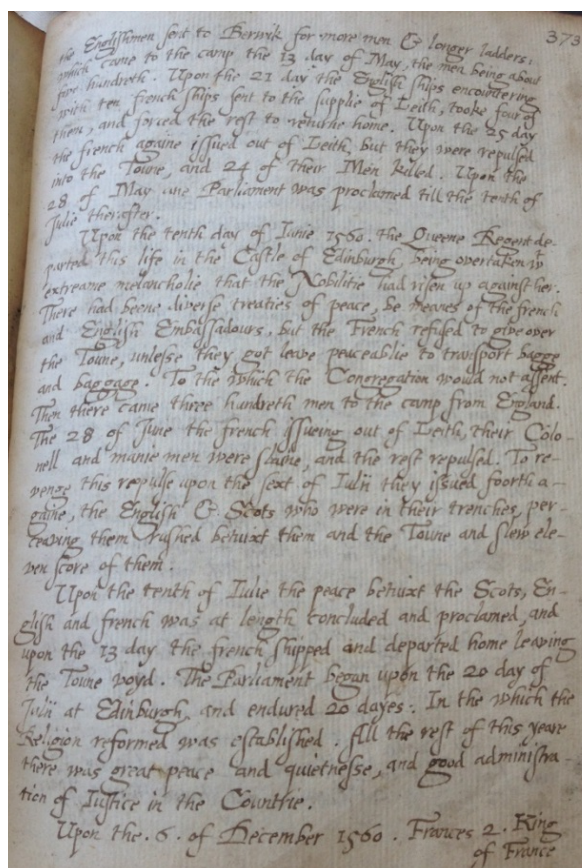 373
the Englishmen sent to Berwik for more men & longer ladders,
which came to the camp the 13 day of May, the men being about
five hundreth. Upon the 21 day the English ships encountering
with ten french ships sent to the supplie of Leith, tooke four of
them, and forced the rest to returne home. Upon the 25 day
the french againe issued out of Leith, but they were repulsed
into the Toune, and 24 of their Men killed. Upon the
28 of May ane Parliament was proclamed till the tenth of
Julie therafter.
Upon the tenth day of Iunie 1560. the Queene Regent de-
parted this life in the Castle of Edinburgh, being overtaken wt
extreame melancholie that the Nobilitie had risen up against her.
There had beene diverse treaties of peace, be meanes of the french
and English Embassadours, but the French refused to give over
the Toune, unlesse they got leave peaceablie to transport bagge
and baggage. To the which the Congregation would not assent.
Then there came three hundreth men to the camp from England.
The 28 of June the french issueing out of Leith, their Colo-
nell and manie men were slaine, and the rest repulsed. To re-
venge this repulse upon the sext of Iulii they issued foorth a-
gaine, the English & Scots who were in their trenches, per-
ceaving them rushed betuixt them and the Toune and slew ele-
ven score of them.
Upon the tenth of Iulie the peace betuixt the Scots, En-
glish and french was at length concluded and proclamed, and
upon the 13 day the french shipped and departed home leaving
the Toune voyd. The Parliament began upon the 20 day of
Julii at Edinburgh, and endured 20 dayes. In the which the
Religion reformed was established. All the rest of this yeare
there was great peace and quietnesse, and good administra-
tion of Iustice in the Countrie.
Upon the .6. of December 1560. Frances 2. King
of France